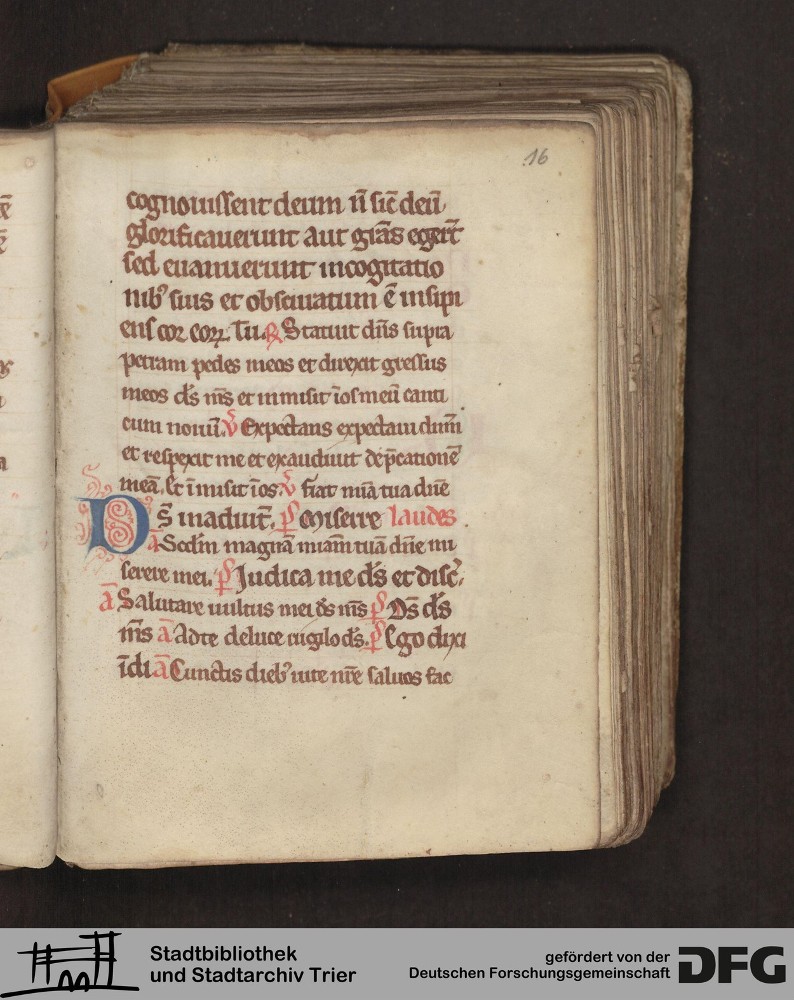 16
cognouissent deum ñ sic̄ deū
glorificauerunt aut grās egerūt
sed euanuerunt incogitatio
nibꝰ suis et obscuratum ē insipi
ens cor eoꝝ. Tu. ℟ Statuit dn̄s supra
petram pedes meos et direxit gressus
meos ds̄ nr̄s et inmisit ī os meū canti
cum nouū. ℣ Expectans expectaui dnm̄
et respexit me et exaudiuit dep̄cationē
meā. Et īmisit ī os. ℣ fiat mīa tua dn̄e
Ds̄ in adiut̄. p̄s Miserere laudes
a Scdm̄ magnā miam̄ tuā dn̄e mi
serere mei. p̄s Iudica me ds̄ et disc̄.
ā Salutare uultus mei ds̄ ms̄ p̄s Ds̄ ds̄
ms̄ ā Ad te de luce uigilo ds̄. p̄s Ego dixi
ī di ā Cunctis diebꝰ uite nr̄e saluos fac
Stadtbibliothek
und Stadtarchiv Trier
gefördert von der
Deutschen Forschungsgemeinschaft
DFG